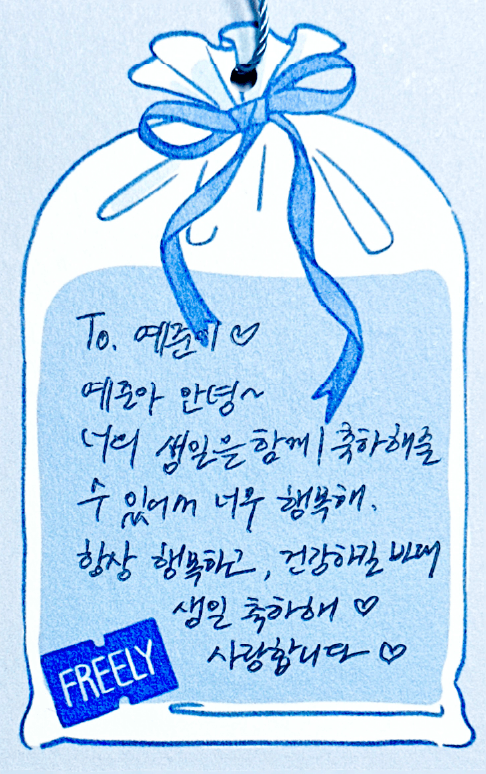 To. 예준이 ♡
예준아 안녕~
너의 생일을 함께 축하해줄
수 있어서 너무 행복해.
항상 행복하고, 건강하길 바래
생일 축하해 ♡
사랑합니다 ♡
FREELY